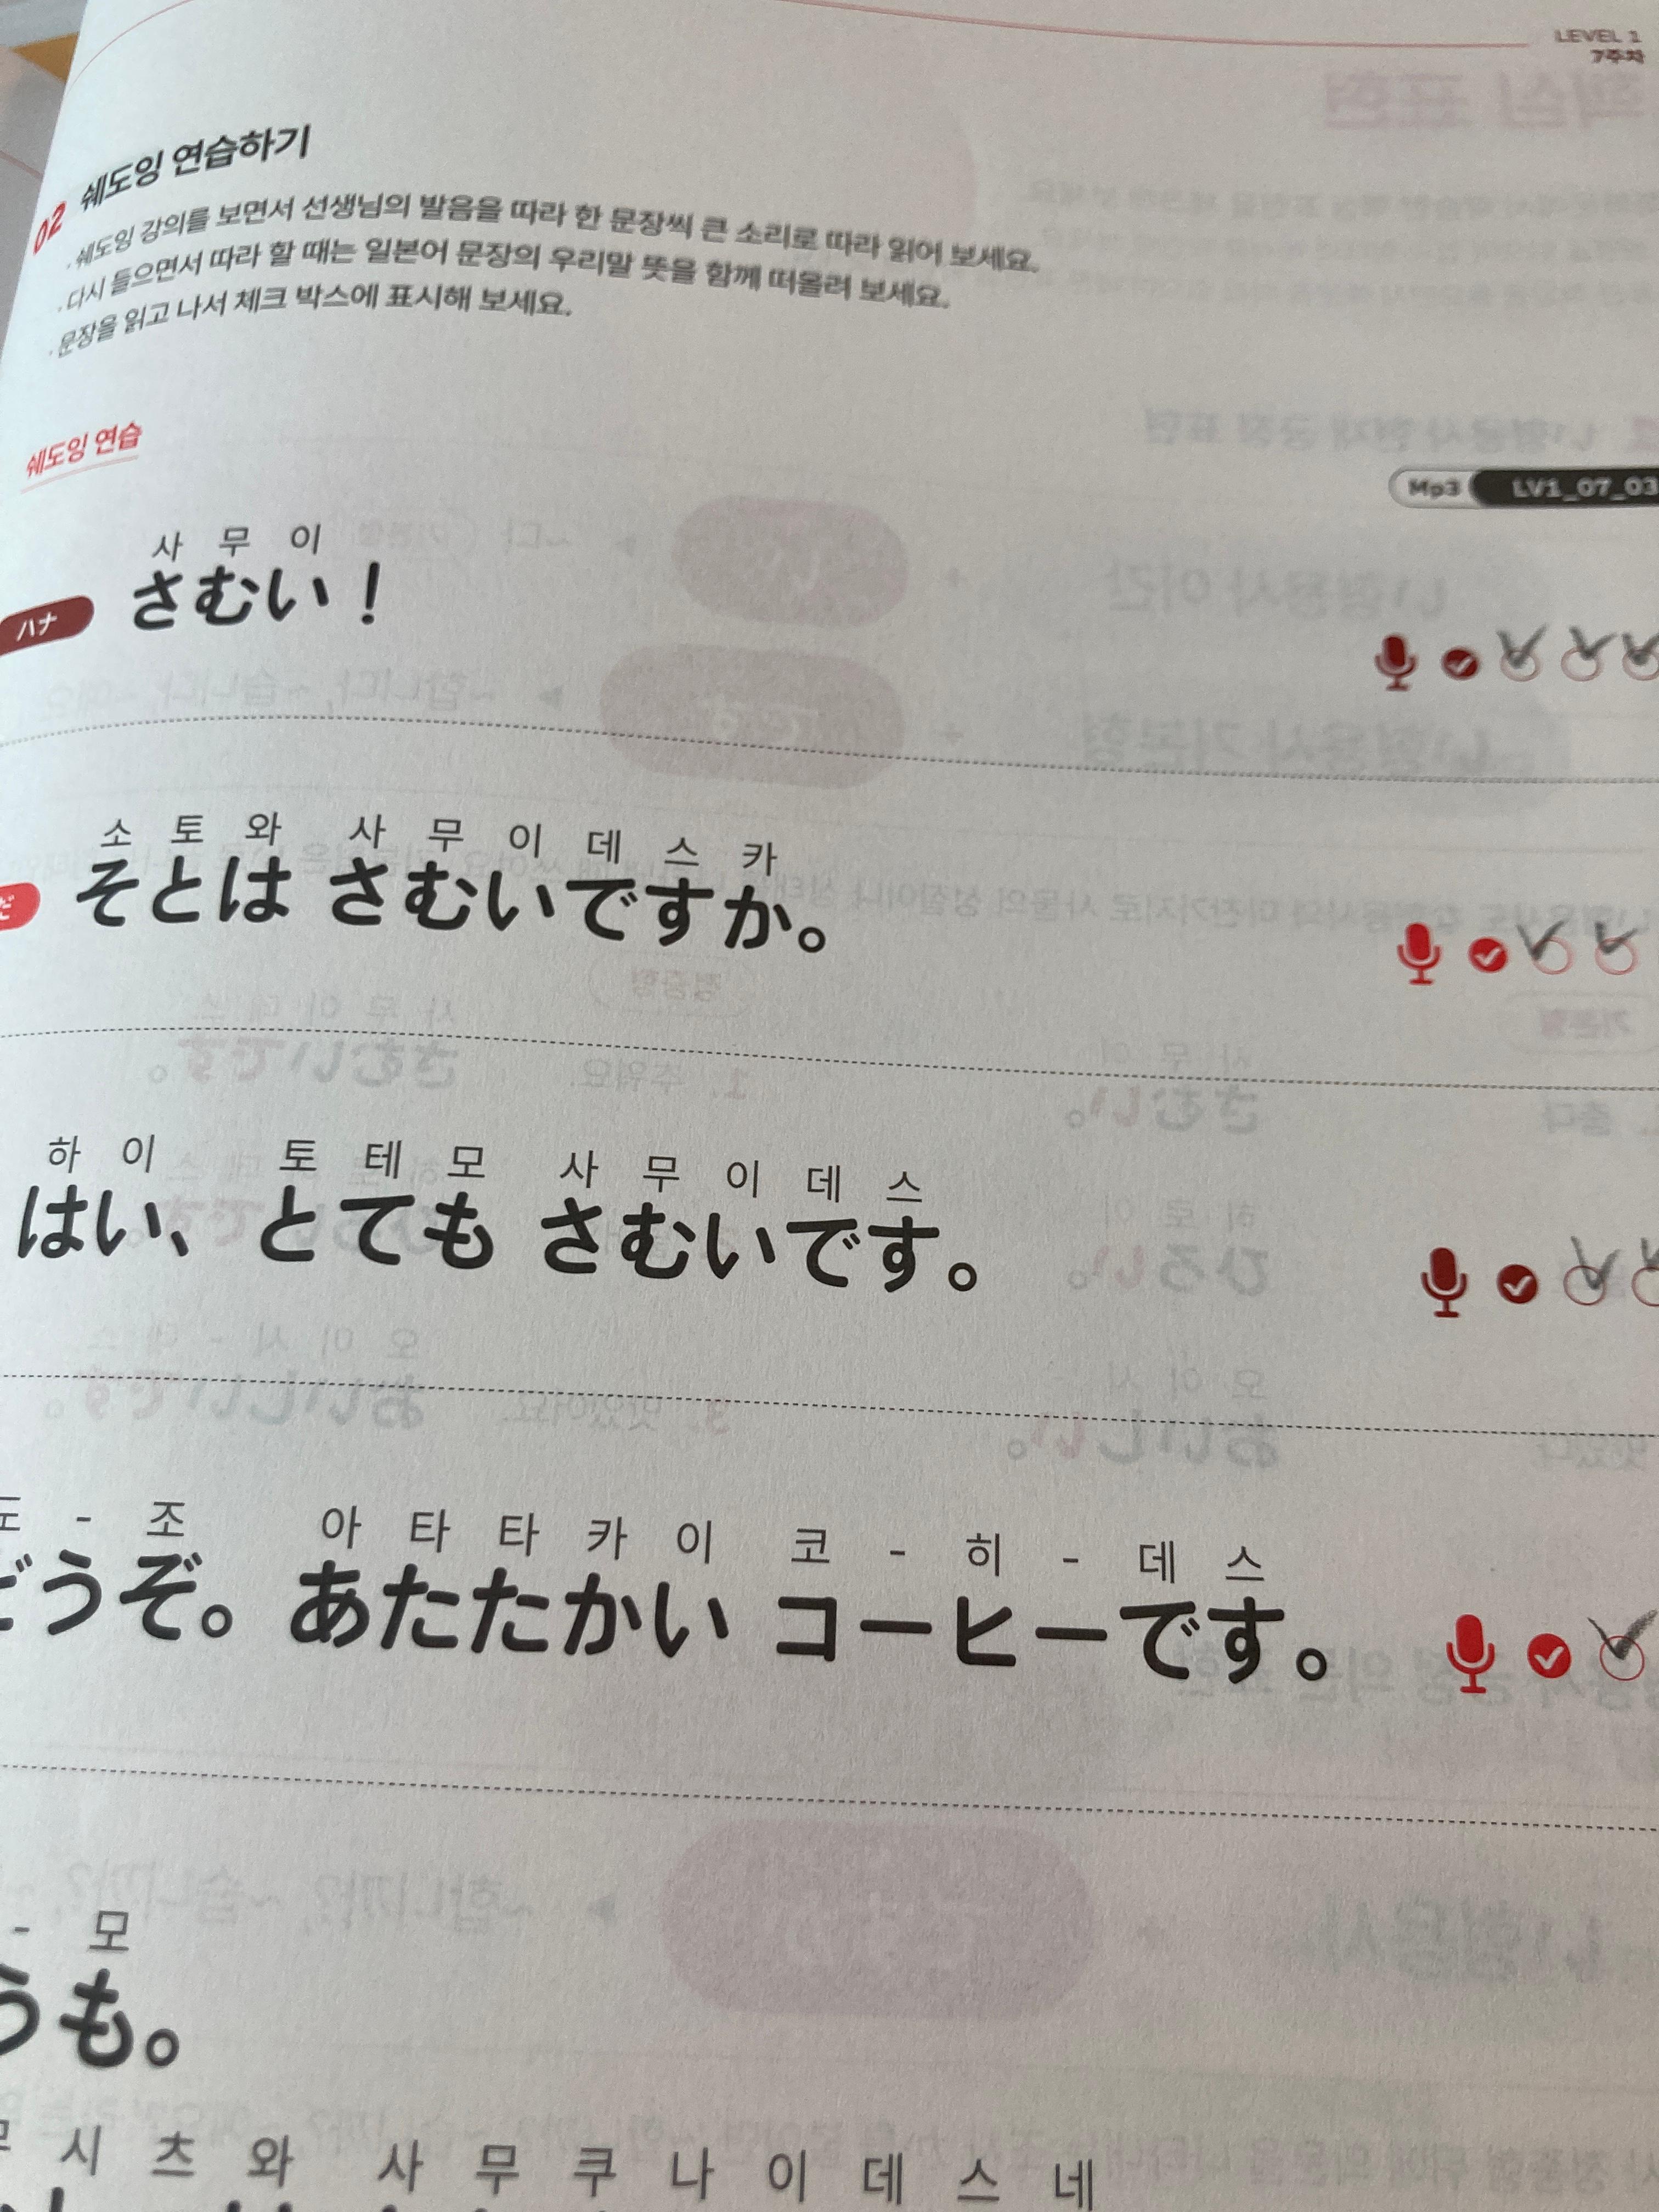 LEVEL 1
7주차
02 쉐도잉 연습하기
· 쉐도잉 강의를 보면서 선생님의 발음을 따라 한 문장씩 큰 소리로 따라 읽어 보세요.
· 다시 들으면서 따라 할 때는 일본어 문장의 우리말 뜻을 함께 떠올려 보세요.
· 문장을 읽고 나서 체크 박스에 표시해 보세요.
쉐도잉 연습
Mp3 LV1_07_03
사 무 이
ハナ さむい！
소 토 와 사 무 이 데 스 카
そとは さむいですか。
하 이 토 테 모 사 무 이 데 스
はい、とても さむいです。
도 - 조 아 타 타 카 이 코 - 히 - 데 스
どうぞ。 あたたかい コーヒーです。
- 모
うも。
시 츠 와 사 무 쿠 나 이 데 스 네